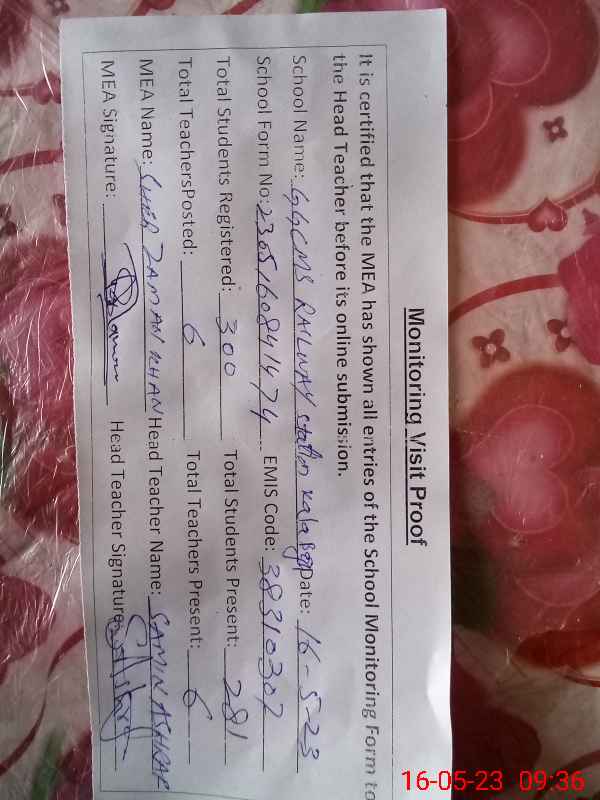 Monitoring Visit Proof
It is certified that the MEA has shown all entries of the School Monitoring Form to
the Head Teacher before its online submission.
School Name: GGCMS RAILWAY station Kala Bagh Date: 16-5-23
School Form No: 2305160841474 EMIS Code: 38310302
Total Students Registered: 300 Total Students Present: 281
Total TeachersPosted: 6 Total Teachers Present: 6
MEA Name: SHER ZAMAN KHAN Head Teacher Name: SAMIN ASHRAF
MEA Signature: Head Teacher Signature:
16-05-23 09:36